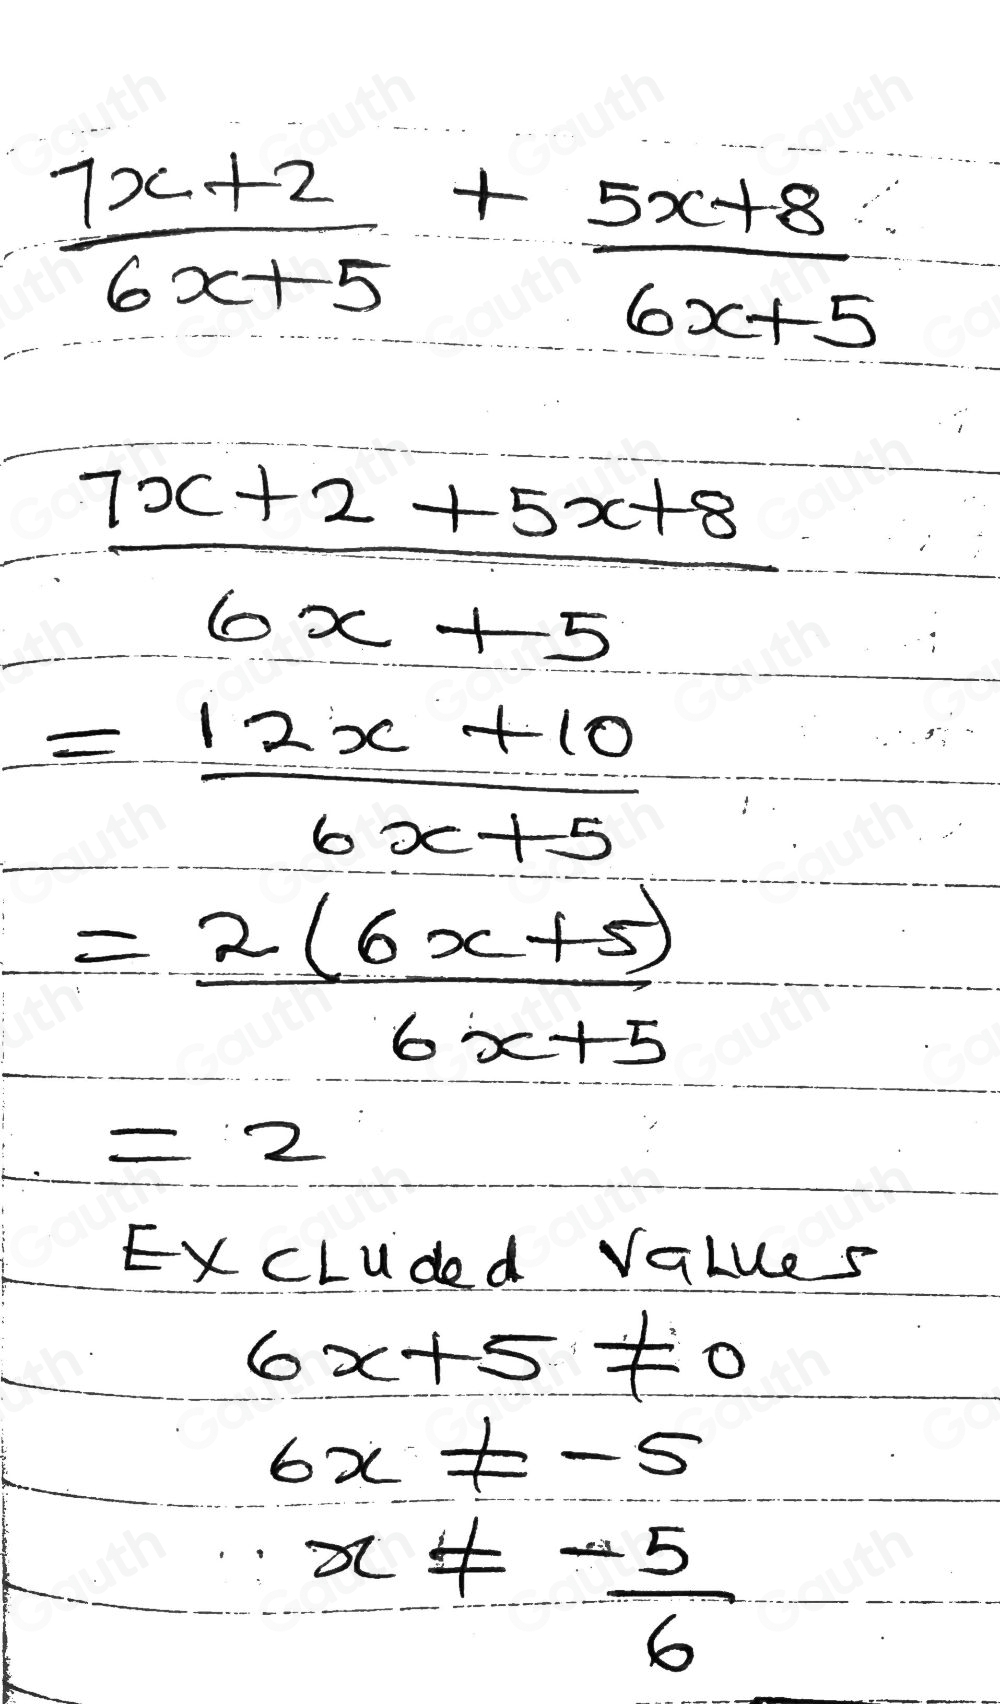 7x+2 + 5x+8
6x+5 6x+5
7x+2+5x+8
6x+5
= 12x+10
6x+5
= 2(6x+5)
6x+5
= 2
Excluded values
6x+5 ≠ 0
6x ≠ -5
x ≠ -5
6